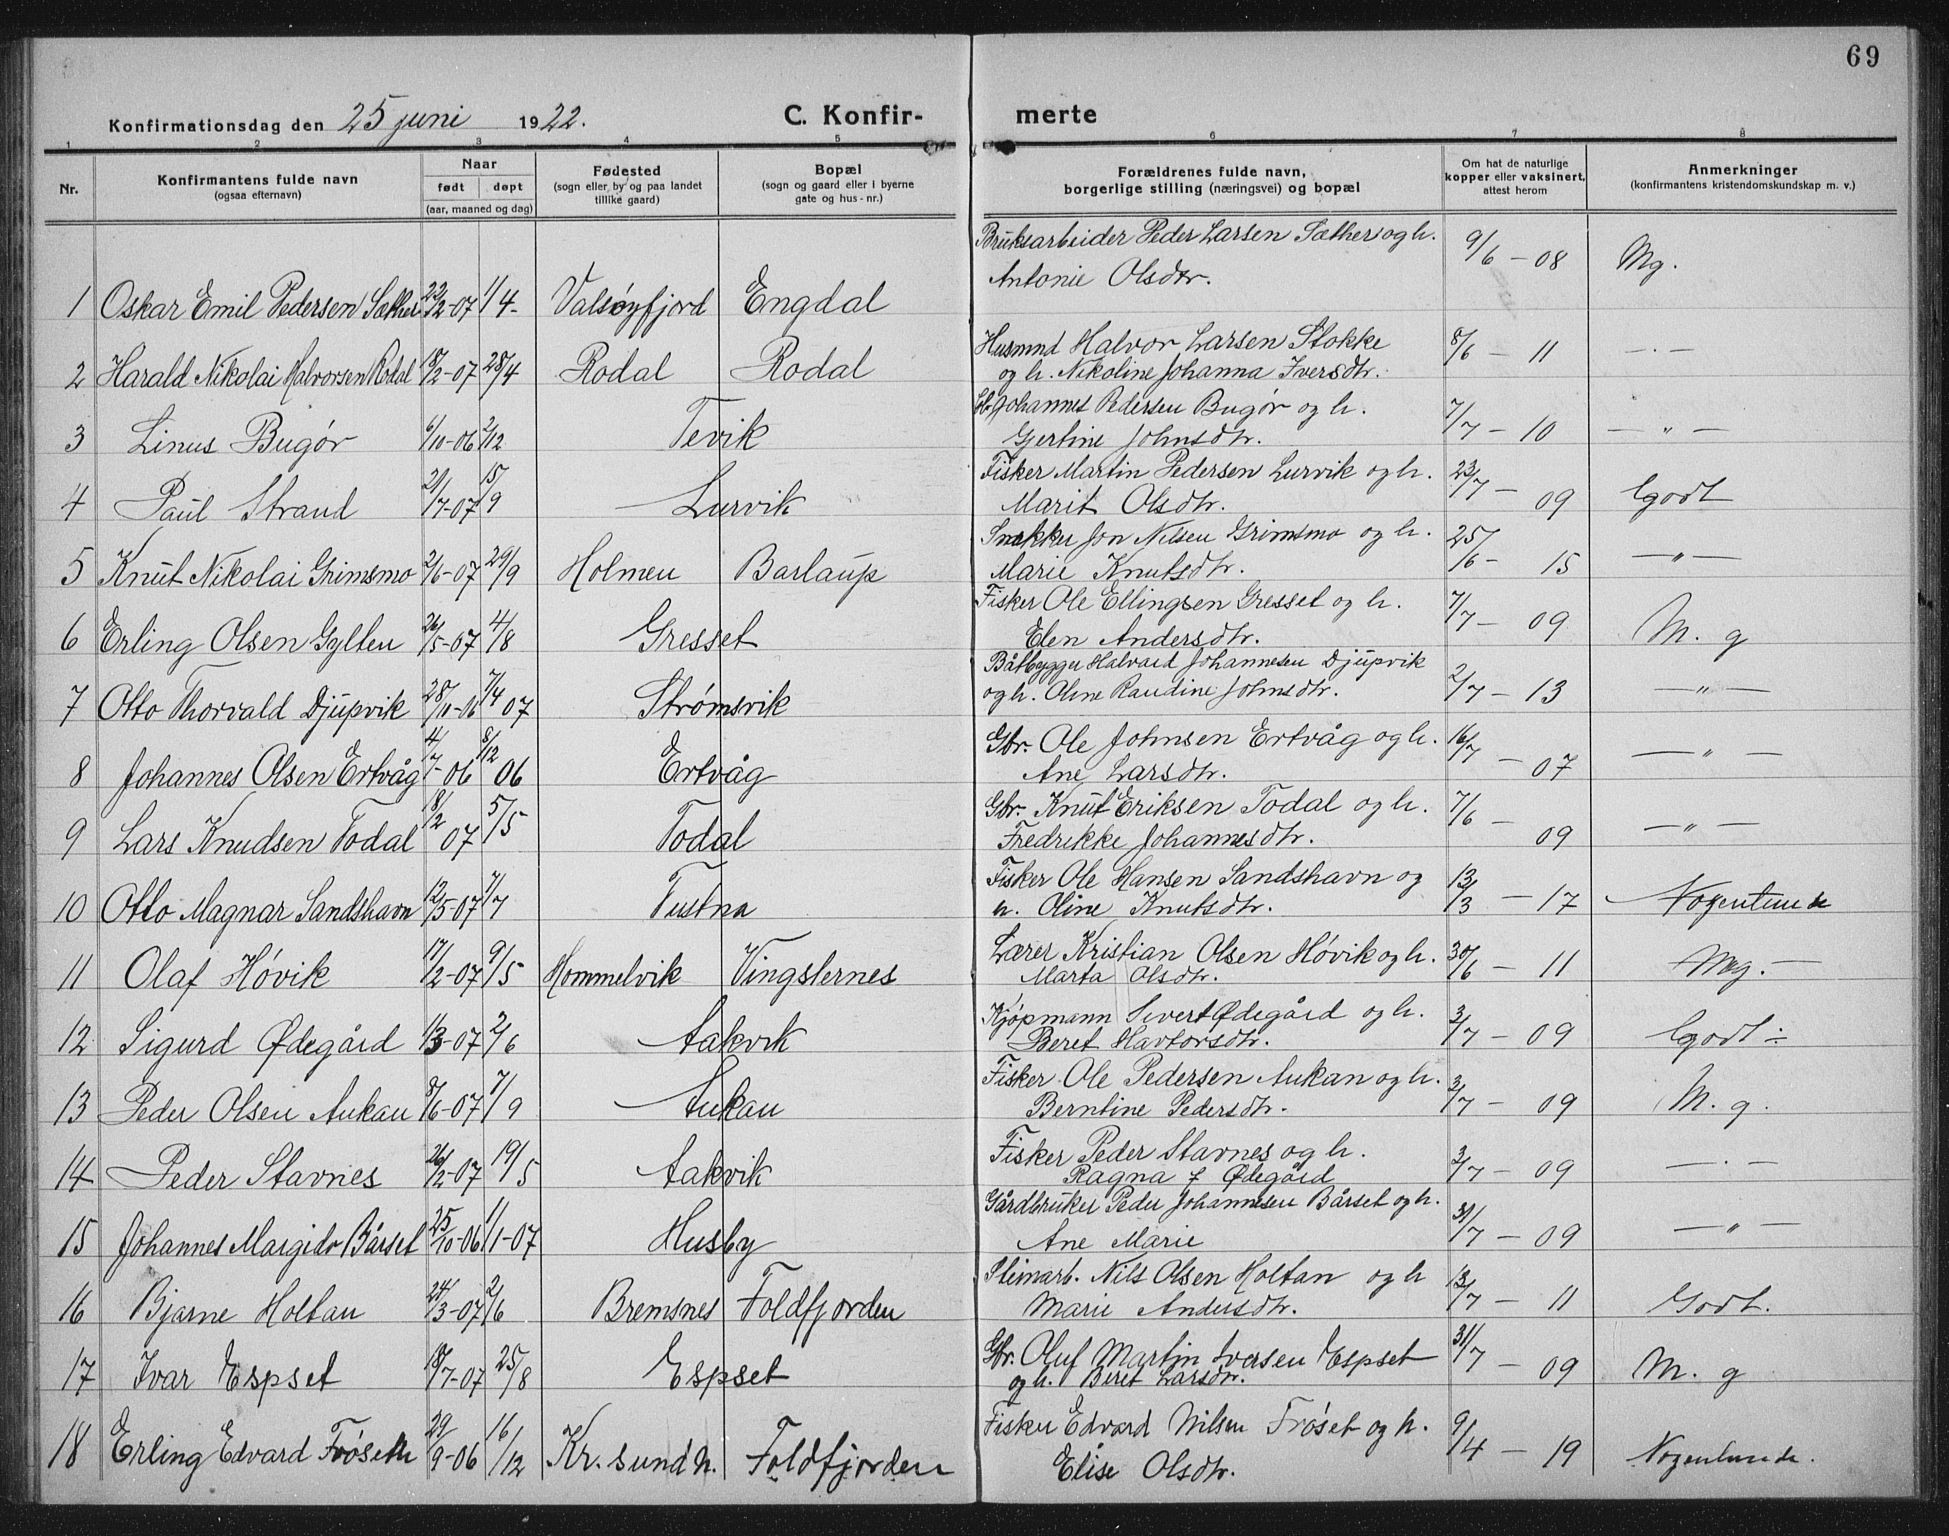 69
Konfirmationsdag den 25 juni 1922. C. Konfir- merte
1 2 3 4 5 6 7 8
Nr. Konfirmantens fulde navn (ogsaa efternavn) Naar født døpt (aar, maaned og dag) Fødested (sogn eller by og paa landet tillike gaard) Bopæl (sogn og gaard eller i byerne gate og hus-nr.) Forældrenes fulde navn, borgerlige stilling (næringsvei) og bopæl Om hat de naturlige kopper eller vaksinert, attest herom Anmerkninger (konfirmantens kristendomskundskap m. v.)
1 Oskar Emil Pedersen Sæther 22/2-07 1/4- Valsøyfjord Engdal Bruksarbeider Peder Larsen Sæther og h. Antonie Olsdtr. 9/6 - 08 Mg.
2 Harald Nikolai Halvorsen Rodal 18/2-07 28/4 Rodal Rodal Husmnd Halvor Larsen Stokke og h. Nikoline Johanna Iversdtr. 8/6 - 11 - . -
3 Linus Bugør 6/10-06 2/12 Tevik Johannes Pedersen Bugør og h. Gjertine Johnsdtr. 7/7 - 10 - " -
4 Paul Strand 21/7-07 15/9 Lurvik Fisker Martin Pedersen Lurvik og h. Marit Olsdtr. 23/7 - 09 Godt
5 Knut Nikolai Grimsmo 2/6-07 29/9 Holmen Barlaup Snekker Jon Nilsen Grimsmo og h. Marie Knutsdtr. 25/6 - 15 - " -
6 Erling Olsen Gylten 26/5-07 4/8 Gresset Fisker Ole Ellingsen Gresset og h. Elen Andersdtr. 7/7 - 09 M. g
7 Otto Thorvald Djupvik 28/11-06 7/4 07 Strømsvik Båtbygger Halvard Johannesen Djupvik og h. Oline Randine Johnsdtr. 2/7 - 13 - " -
8 Johannes Olsen Ertvåg 4/7-06 8/12 06 Ertvåg Gbr. Ole Johnsen Ertvåg og h. Ane Larsdtr. 16/7 - 07 - " -
9 Lars Knudsen Todal 18/2 07 5/5 Todal Gbr. Knut Eriksen Todal og h. Fredrikke Johannesdtr. 7/6 - 09 - " -
10 Otto Magnar Sandshavn 12/5-07 7/7 Tustna Fisker Ole Hansen Sandshavn og h. Oline Knutsdtr. 13/3 - 17 Nogenlunde
11 Olaf Høvik 17/2-07 9/5 Hommelvik Vingsternes Lærer Kristian Olsen Høvik og h. Marta Olsdtr. 30/6 - 11 Mg. -
12 Sigurd Ødegård 1/3-07 2/6 Aakvik Kjøpmann Sivert Ødegård og h. Beret Havtorsdtr. 3/7 - 09 Godt ÷
13 Peder Olsen Aukan 8/6-07 7/9 Aukan Fisker Ole Pedersen Aukan og h. Berntine Pedersdtr. 3/7 - 09 M. g.
14 Peder Stavnes 26/2-07 19/5 Aakvik Fisker Peder Stavnes og h. Ragna f Ødegård 3/7 - 09 - . -
15 Johannes Margido Bårset 25/10-06 1/1-07 Husby Gårdbruker Peder Johannesen Bårset og h. Ane Marie 31/7 - 09 - " -
16 Bjarne Holtan 24/3-07 2/6 Bremsnes Foldfjorden Nils Olsen Holtan og h Marie Andersdtr. 13/7 - 11 Godt.
17 Ivar Espset 18/7-07 25/8 Espset Gbr. Oluf Martin Iversen Espset og h. Beret Larsdtr. 31/7 - 09 M. g
18 Erling Edvard Frøseth 29/9-06 16/12 Kr. sund N. Foldfjorden Fisker Edvard Nilsen Frøset og h. Elise Olsdtr. 9/4 - 19 Nogenlunde.